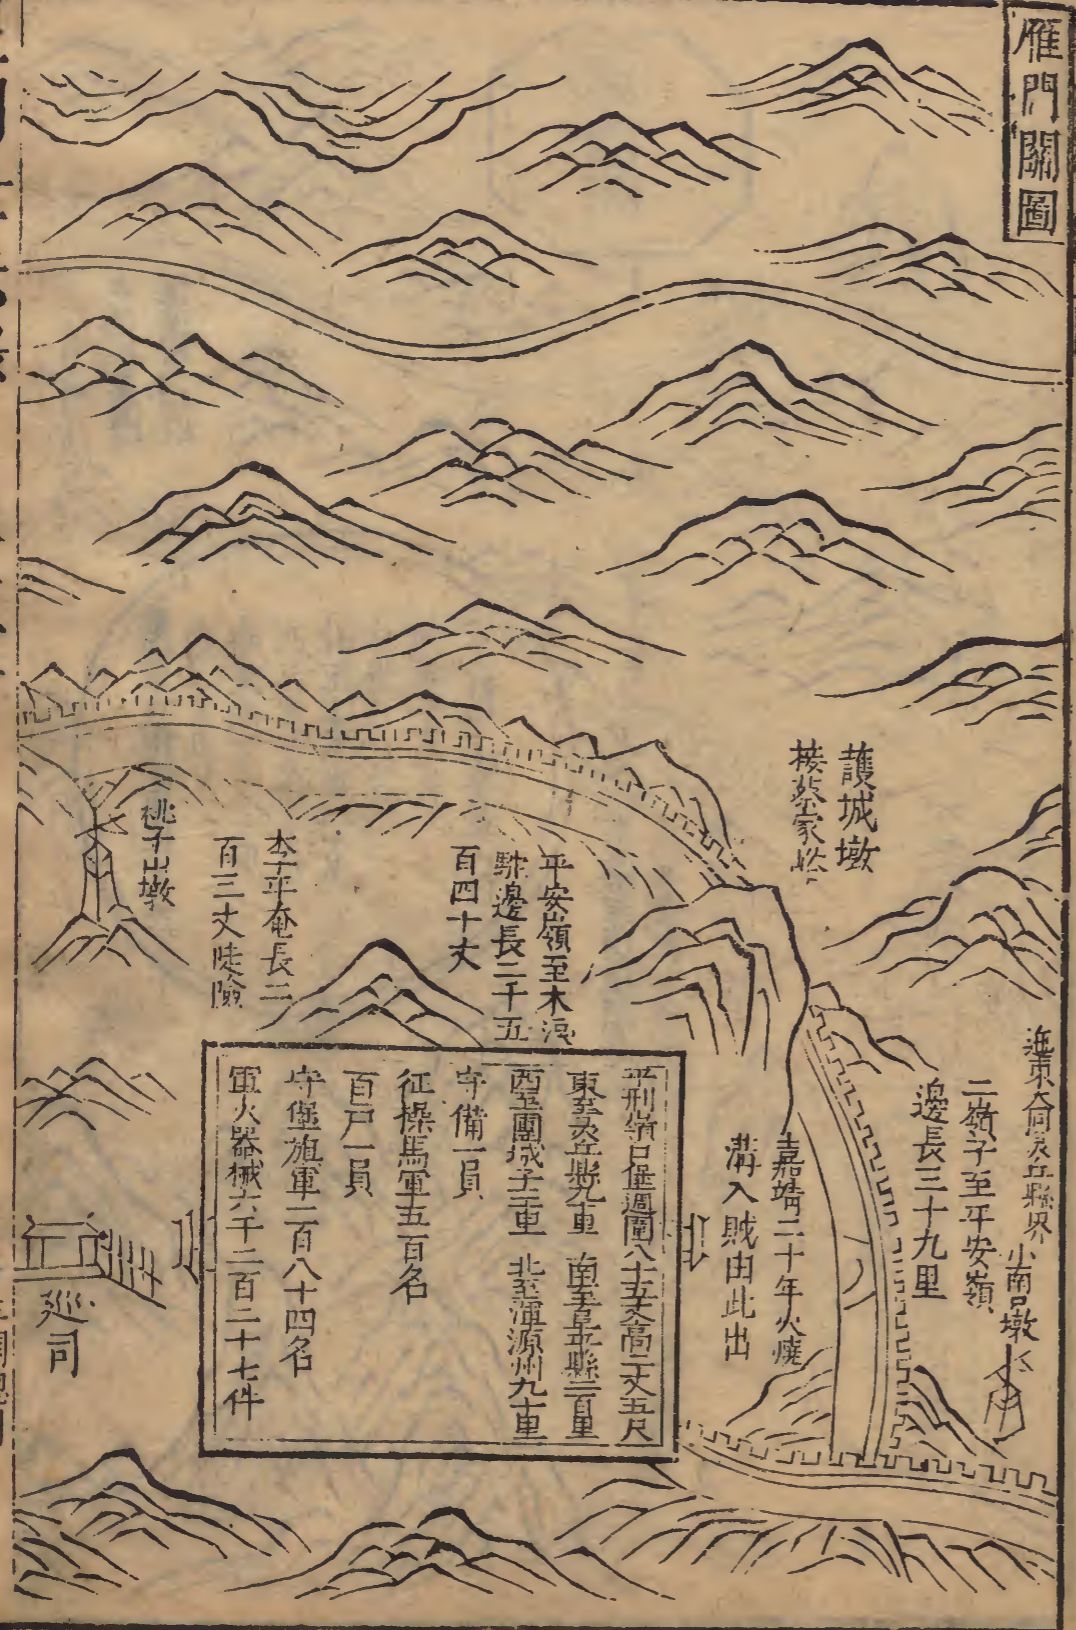 雁門關圖
進東
丘縣界
小南口墩
二嶺子至平安嶺
邊長三十九里
護城墩
接蔡家峪
嘉靖二十年火燒
溝入賊由此出
平安嶺至木
駞邊長二千五
百四十丈
李平奄長二
百三丈陡險
桃子山墩
平刑嶺口堡週圍八十五丈高二丈五尺
東至灵丘縣九十里 南至阜平縣三百里
西至團城子三十里 北至渾源州九十里
守備一員
征操馬軍五百名
百戶一員
守堡旗軍二百八十四名
軍火器械六千二百二十七件
廵司